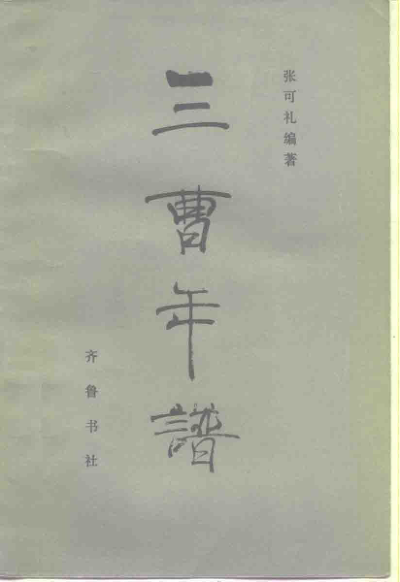 张可礼编著
三曹年譜
齐鲁书社